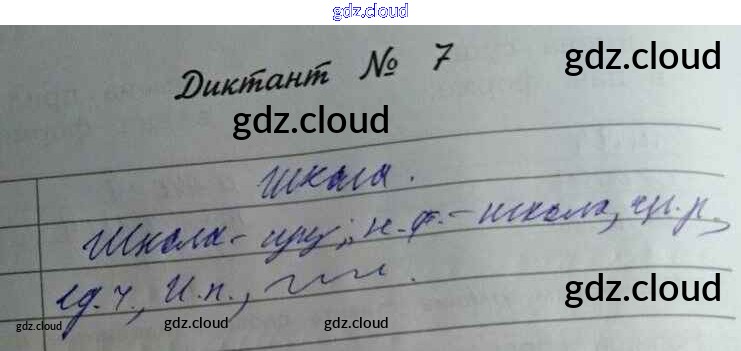 gdz.cloud
gdz.cloud
Диктант № 7
gdz.cloud
Школа.
Школа - сущ., н.ф. - школа, ж.р.,
ед.ч., И.п.,
gdz.cloud
gdz.cloud gdz.cloud gdz.cloud